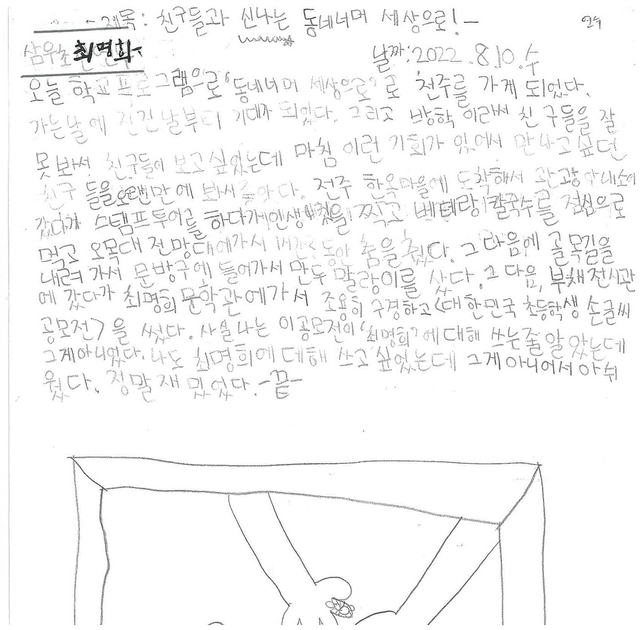 - 제목: 친구들과 신나는 동네너머 세상으로! -
29
삼우초 최명희
날짜: 2022. 8. 10. 수
오늘 학교 프로그램으로 '동네너머 세상으로'로 전주를 가게 되었다.
가는날에 전날부터 기대가 되었다. 그리고 방학 이라써 친구들을 잘
못봐서 친구들이 보고싶었는데 마침 이런 기회가 있어서 만나고 싶던
친구 들을오랜만에 봐서 좋았다. 전주 한옥마을에 도착해서 관광안내소에
갔다가 스탬프투어를 하다가 인생네컷을 찍고 베테랑 칼국수를 점심으로
먹고 오목대 전망대에가서 동안 춤을 췄다. 그 다음에 골목길을
내려 가서 문방구에 들어가서 만두 말랑이를 샀다. 그 다음, 부채전시관
에 갔다가 최명희 문학관 에가서 조용히 구경하고 <대한민국 초등학생 손글씨
공모전> 을 썼다. 사실 나는 이공모전이 '최명희'에 대해 쓰는줄 알았는데
그게아니었다. 나도 최명희에 대해 쓰고 싶었는데 그게아니어서 아쉬
웠다. 정말 재밌었다. -끝-